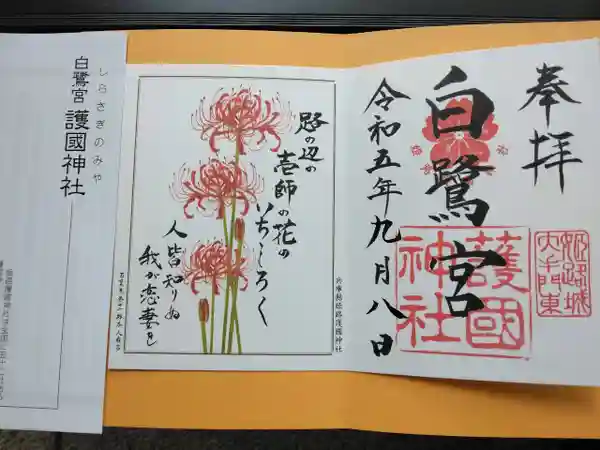 奉拝
白鷺宮
護國
神社
姫路城
大手門東
令和五年九月八日
路の辺の
壱師の花の
いちしろく
人皆知りぬ
我が恋妻を
兵庫縣姫路護國神社
しらさぎのみや
白鷺宮
護國神社